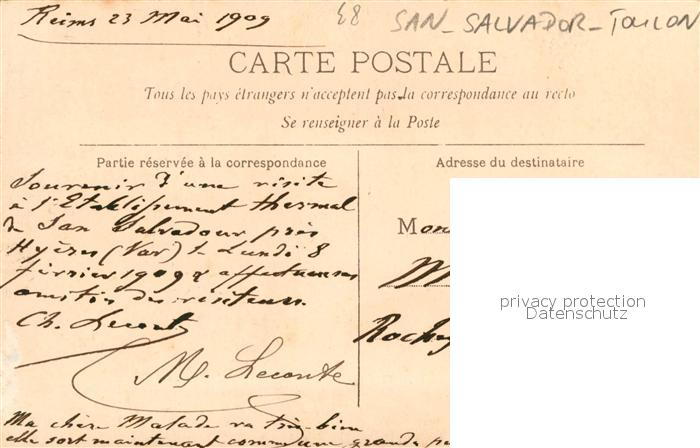 Reims 23 Mai 1909
48 SAN-SALVADOR-TOULON
CARTE POSTALE
Tous les pays étrangers n'acceptent pas la correspondance au recto
Se renseigner à la Poste
Partie réservée à la correspondance
Adresse du destinataire
Souvenir d'une visite
à l'Etablissement thermal
de San Salvadour près
Hyères (Var) le Lundi 8
février 1909 & affectueuses
amitiés des visiteurs.
Ch. Lecomte
M. Lecomte
Mon
M
Roche
privacy protection
Datenschutz
Ma chère Malade va très bien
elle sort maintenant comme une grande